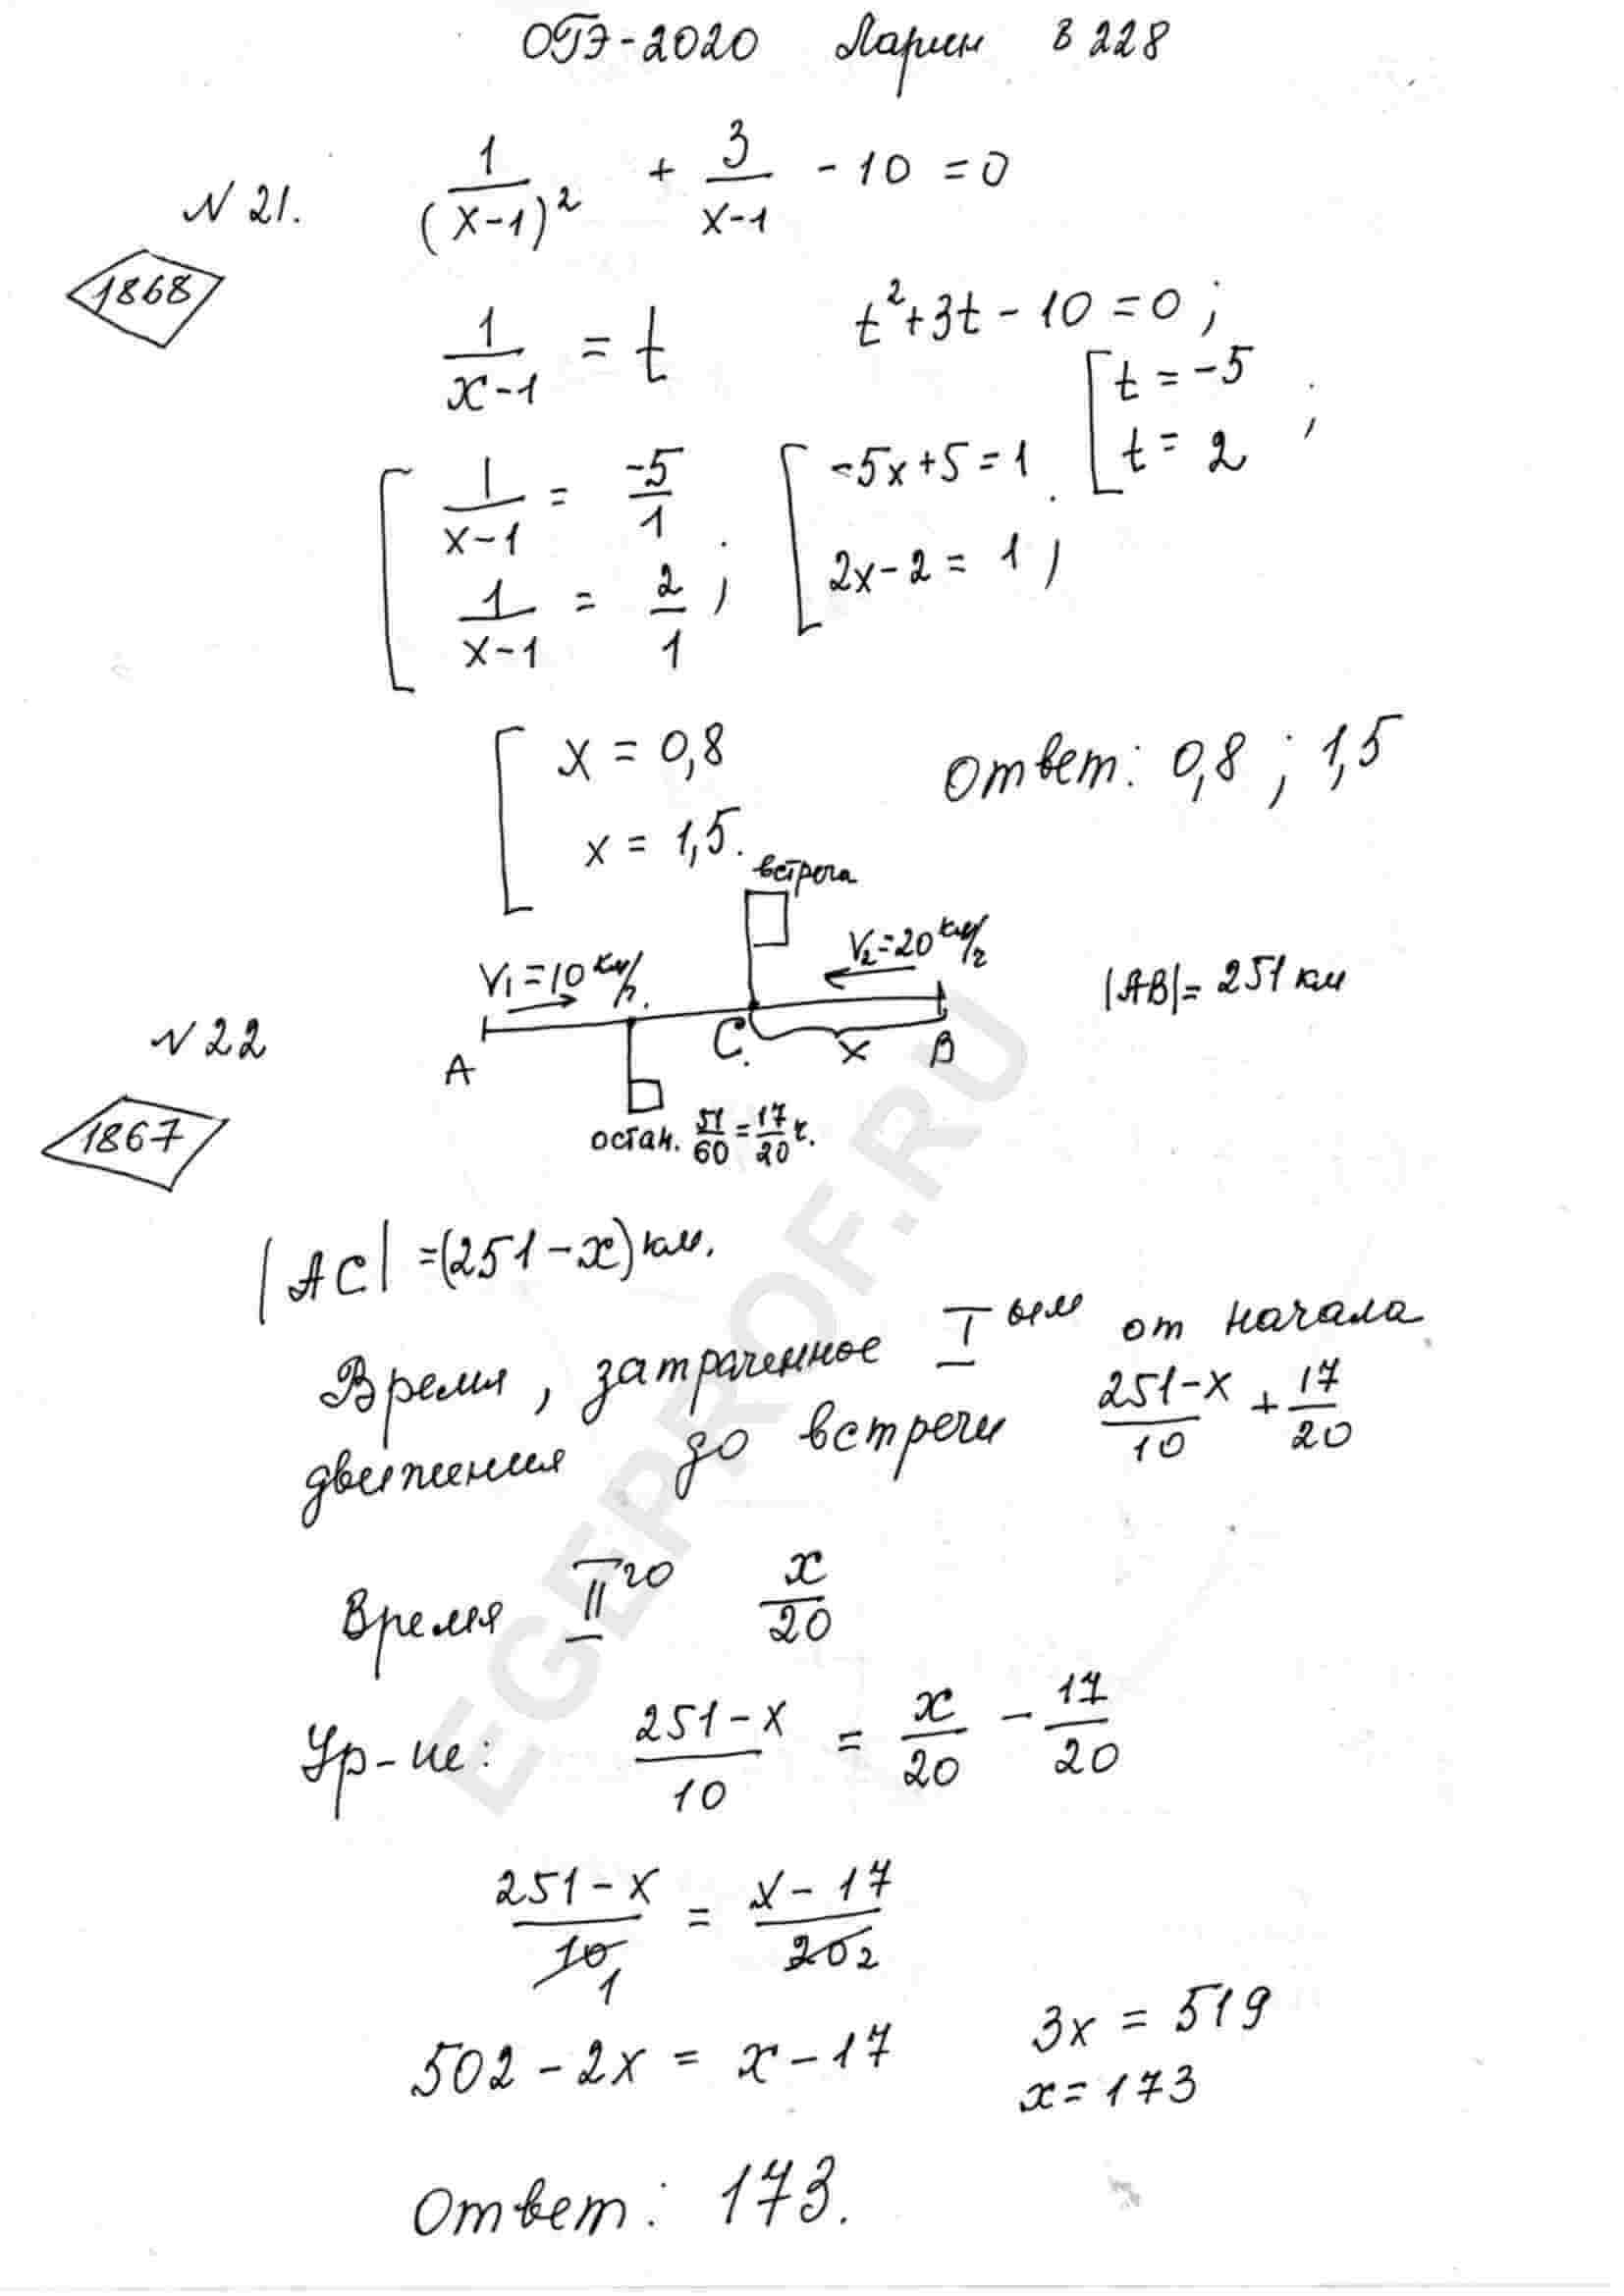 ОГЭ-2020 Ларин В 228
N 21. 1/(x-1)² + 3/(x-1) - 10 = 0
1868
1/(x-1) = t t²+3t-10=0;
[ t = -5
t = 2 ;
[ 1/(x-1) = -5/1
1/(x-1) = 2/1 ;
[ -5x+5=1
2x-2=1 ;
[ x = 0,8
x = 1,5.
Ответ: 0,8 ; 1,5
встреча
V₁=10 км/ч. V₂=20 км/ч
|AB|= 251 км
N 22
A C. x B
1867
остан. 51/60 = 17/20 ч.
|AC| =(251-x) км.
Время, затраченное I ым от начала
движения до встречи (251-x)/10 + 17/20
Время II го x/20
Ур-ие: (251-x)/10 = x/20 - 17/20
(251-x)/10 1 = (x-17)/20 2
502-2x = x-17 3x = 519
x=173
Ответ: 173.
EGEPROF.RU